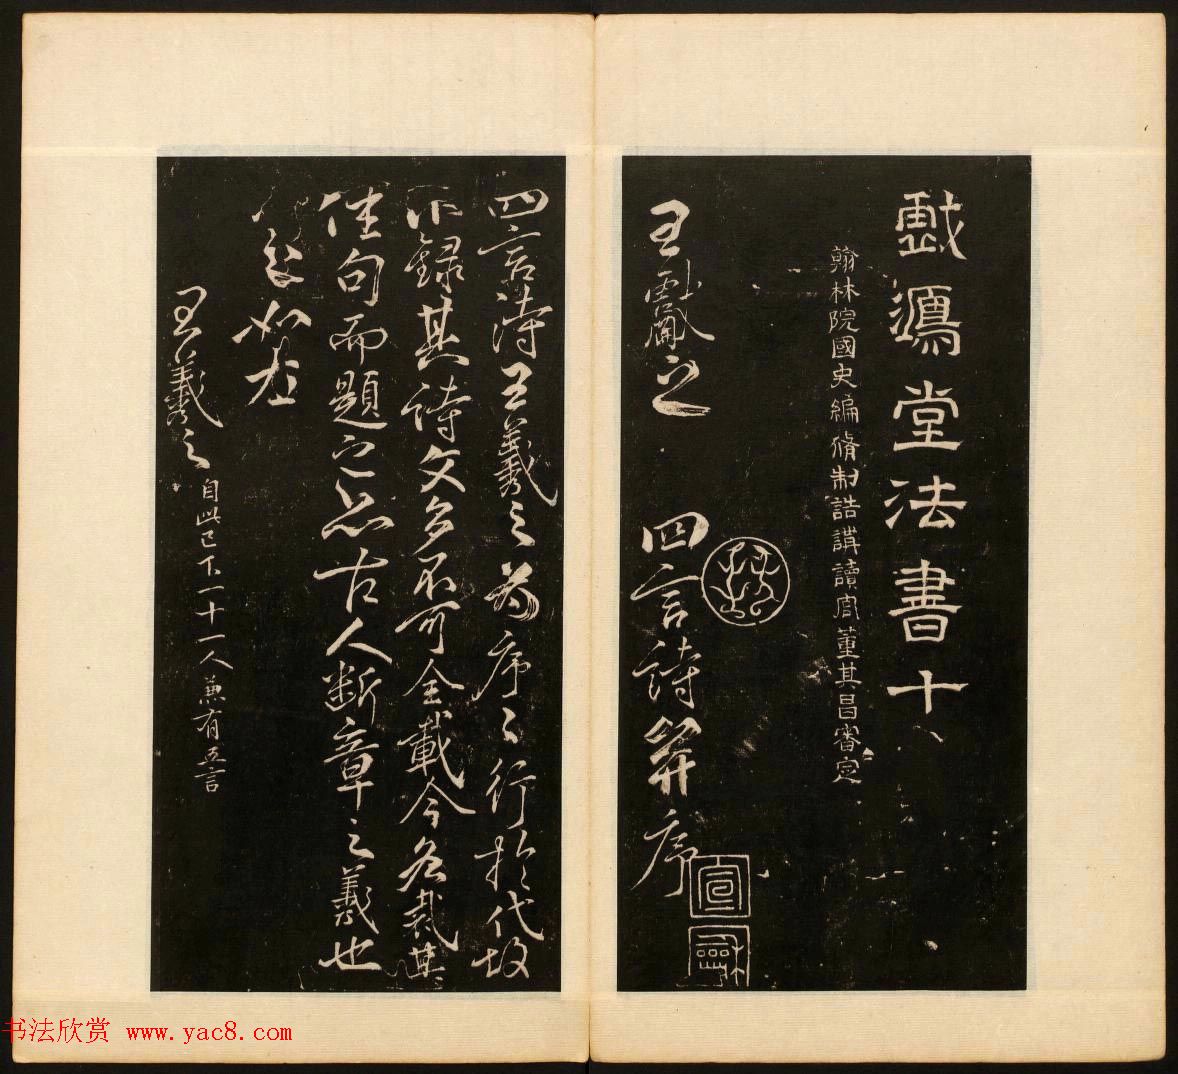 戲鴻堂法書十
翰林院國史編脩制誥講讀官董其昌審定
王獻之 四言詩并序
宣
龢
四言詩王羲之為序々行於代故
不錄其詩文多不可全載今各裁其
佳句而題之亦古人斷章之義也
如左
王羲之 自此已下一十一人兼有五言
书法欣赏 www.yac8.com